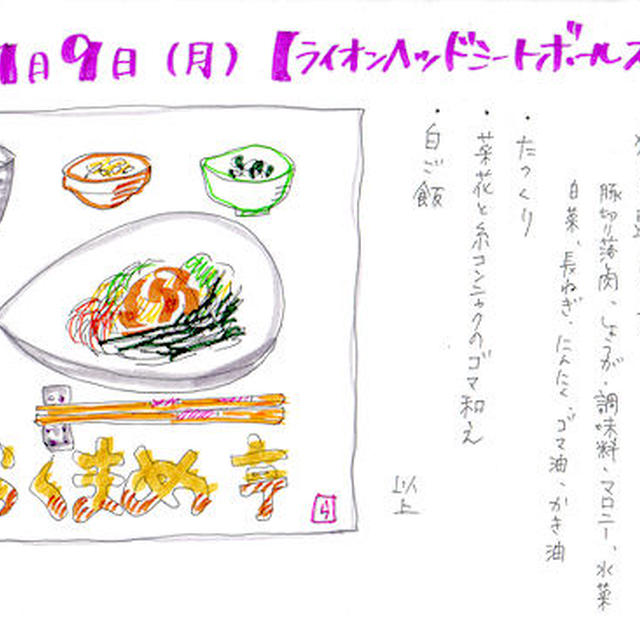 1月9日(月)【ライオンヘッドミートボールス
豚切り落肉、しょうが、調味料、マロニー、水菜
白菜、長ねぎ、にんたく、ゴマ油、かき油
・たっくり
・菜花と糸コンニャクのゴマ和え
・白ご飯
以上
くまめ亭